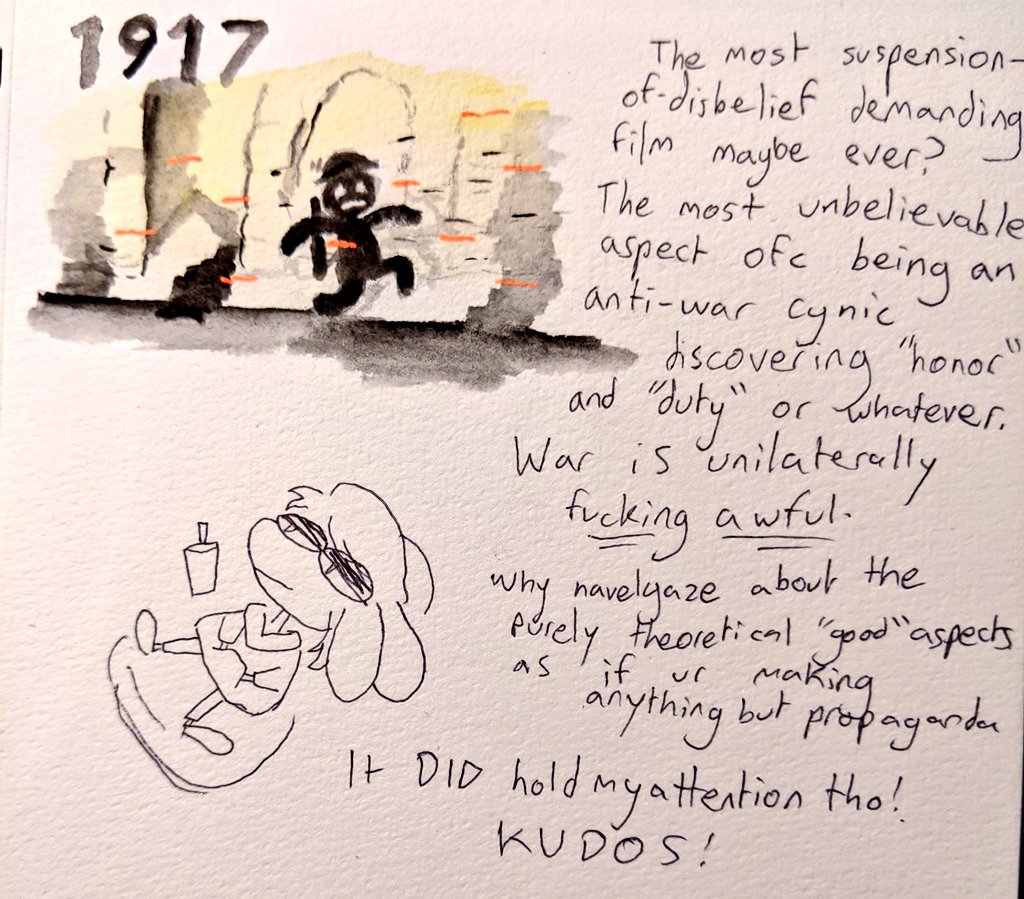 1917
The most suspension-
of-disbelief demanding
film maybe ever?
The most unbelievable
aspect ofc being an
anti-war cynic
discovering "honor"
and "duty" or whatever.
War is unilaterally
fucking awful.
why navelgaze about the
purely theoretical "good" aspects
as if ur making
anything but propaganda
It DID hold my attention tho!
KUDOS!